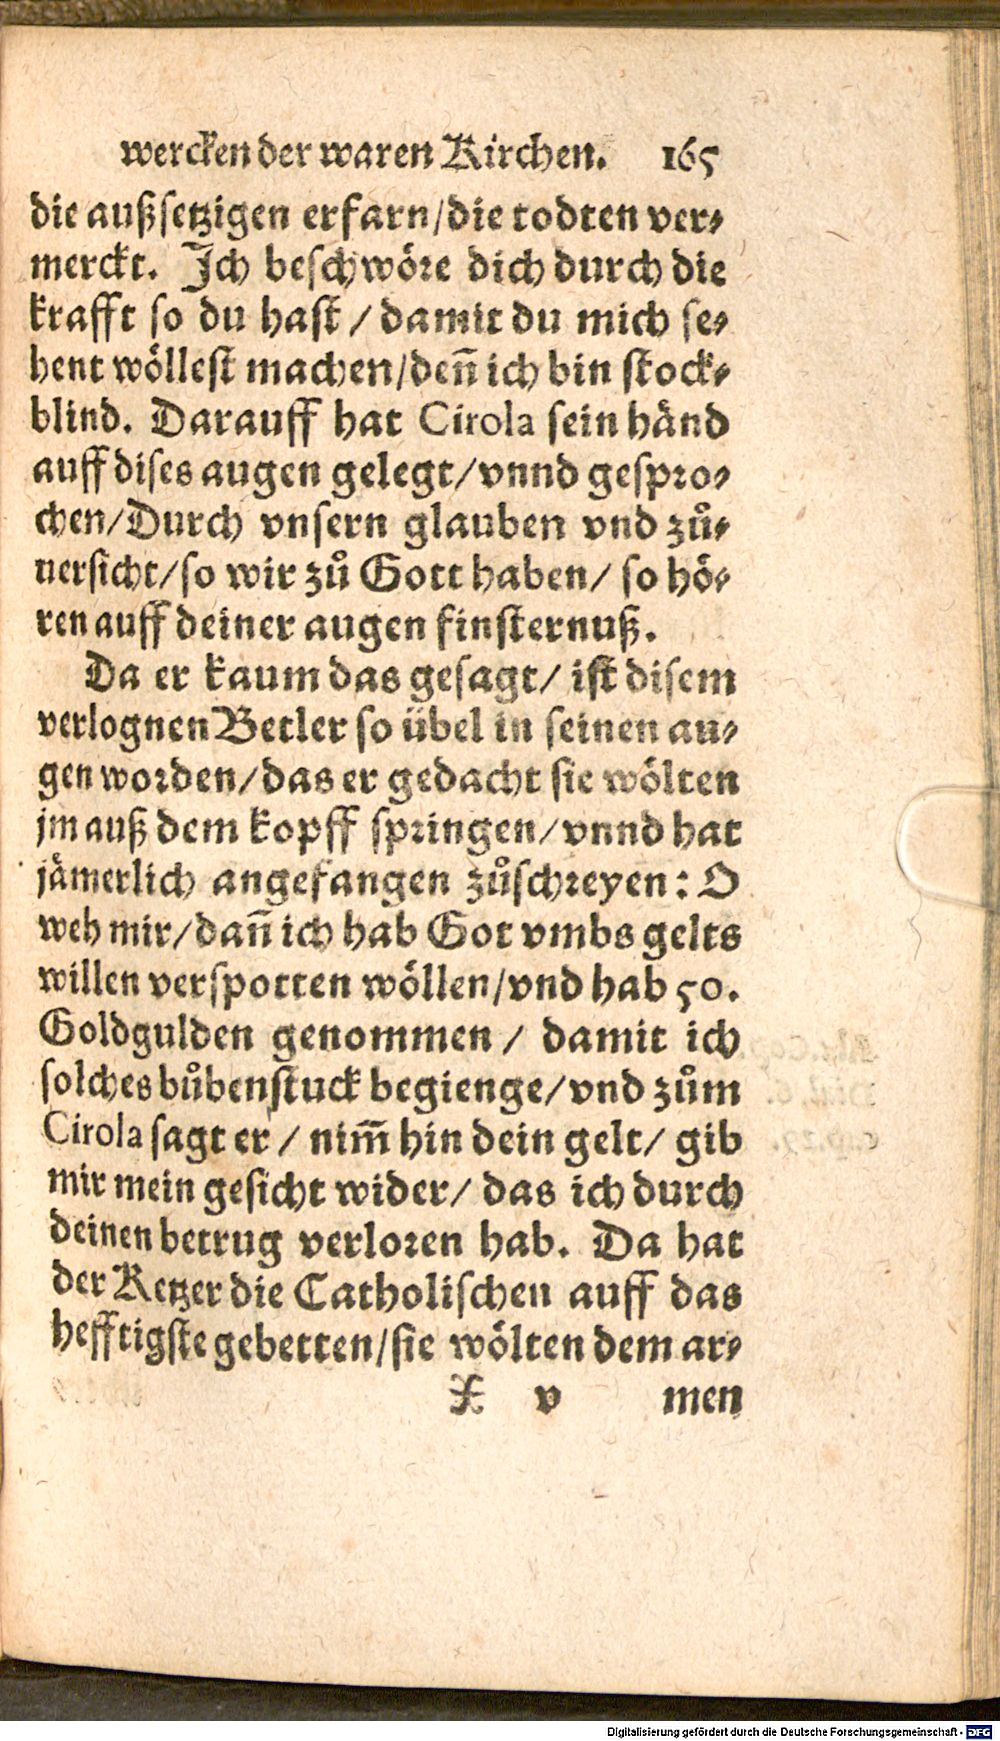 wercken der waren Kirchen. 165
die außsetzigen erfarn/die todten ver⸗
merckt. Ich beschwöre dich durch die
krafft so du hast / damit du mich se⸗
hent wöllest machen/deñ ich bin stock⸗
blind. Darauff hat Cirola sein händ
auff dises augen gelegt/vnnd gespro⸗
chen/Durch vnsern glauben vnd zů⸗
uersicht/so wir zů Gott haben/ so hö⸗
ren auff deiner augen finsternuß.
Da er kaum das gesagt/ ist disem
verlognen Betler so übel in seinen au⸗
gen worden/das er gedacht sie wölten
jm auß dem kopff springen/vnnd hat
jämerlich angefangen zůschreyen: O
weh mir/dañ ich hab Got vmbs gelts
willen verspotten wöllen/vnd hab 50.
Goldgulden genommen / damit ich
solches bůbenstuck begienge/vnd zům
Cirola sagt er / nim̃ hin dein gelt/ gib
mir mein gesicht wider/ das ich durch
deinen betrug verloren hab. Da hat
der Ketzer die Catholischen auff das
hefftigste gebetten/sie wölten dem ar⸗
X v men
Digitalisierung gefördert durch die Deutsche Forschungsgemeinschaft - DFG